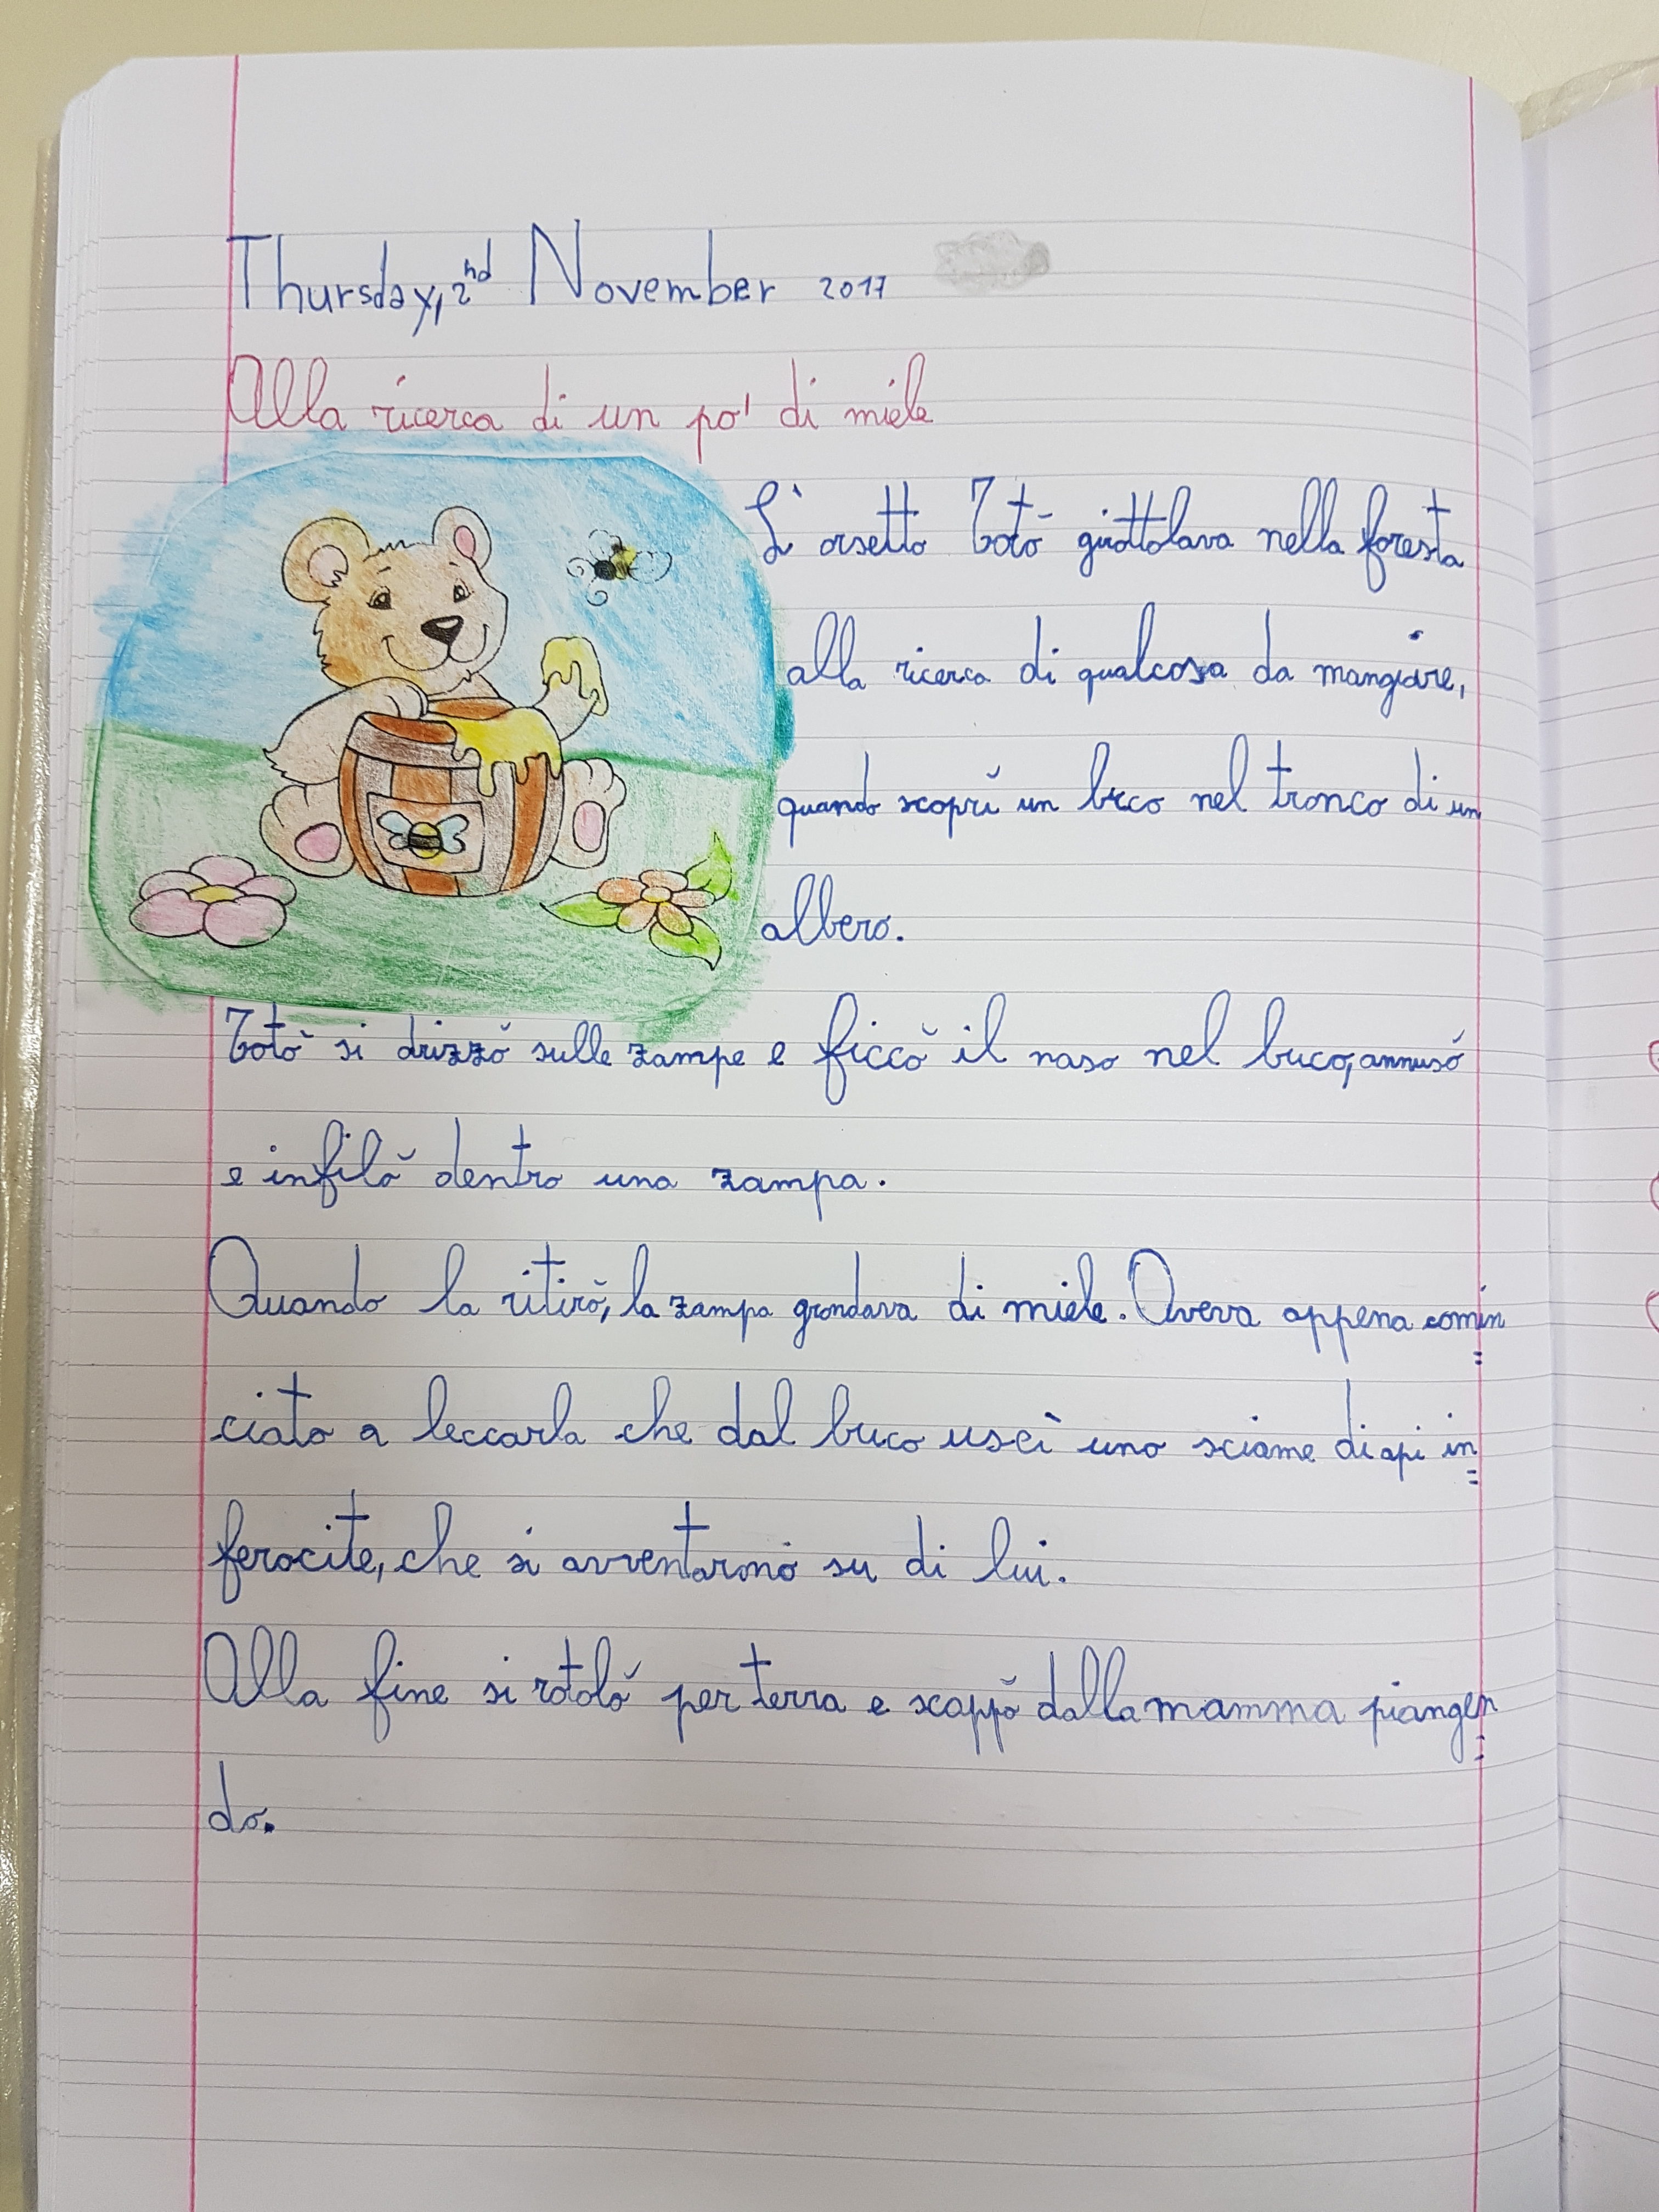 Thursday, 2nd November 2017
Alla ricerca di un po' di miele
L'orsetto Totò girottolava nella foresta
alla ricerca di qualcosa da mangiare,
quando scoprì un buco nel tronco di un
albero.
Totò si drizzò sulle zampe e ficcò il naso nel buco, annusò
e infilò dentro una zampa.
Quando la ritirò, la zampa grondava di miele. Aveva appena comin=
ciato a leccarla che dal buco uscì uno sciame di api in=
ferocite, che si avventarono su di lui.
Alla fine si rotolò per terra e scappò dalla mamma piangen=
do.